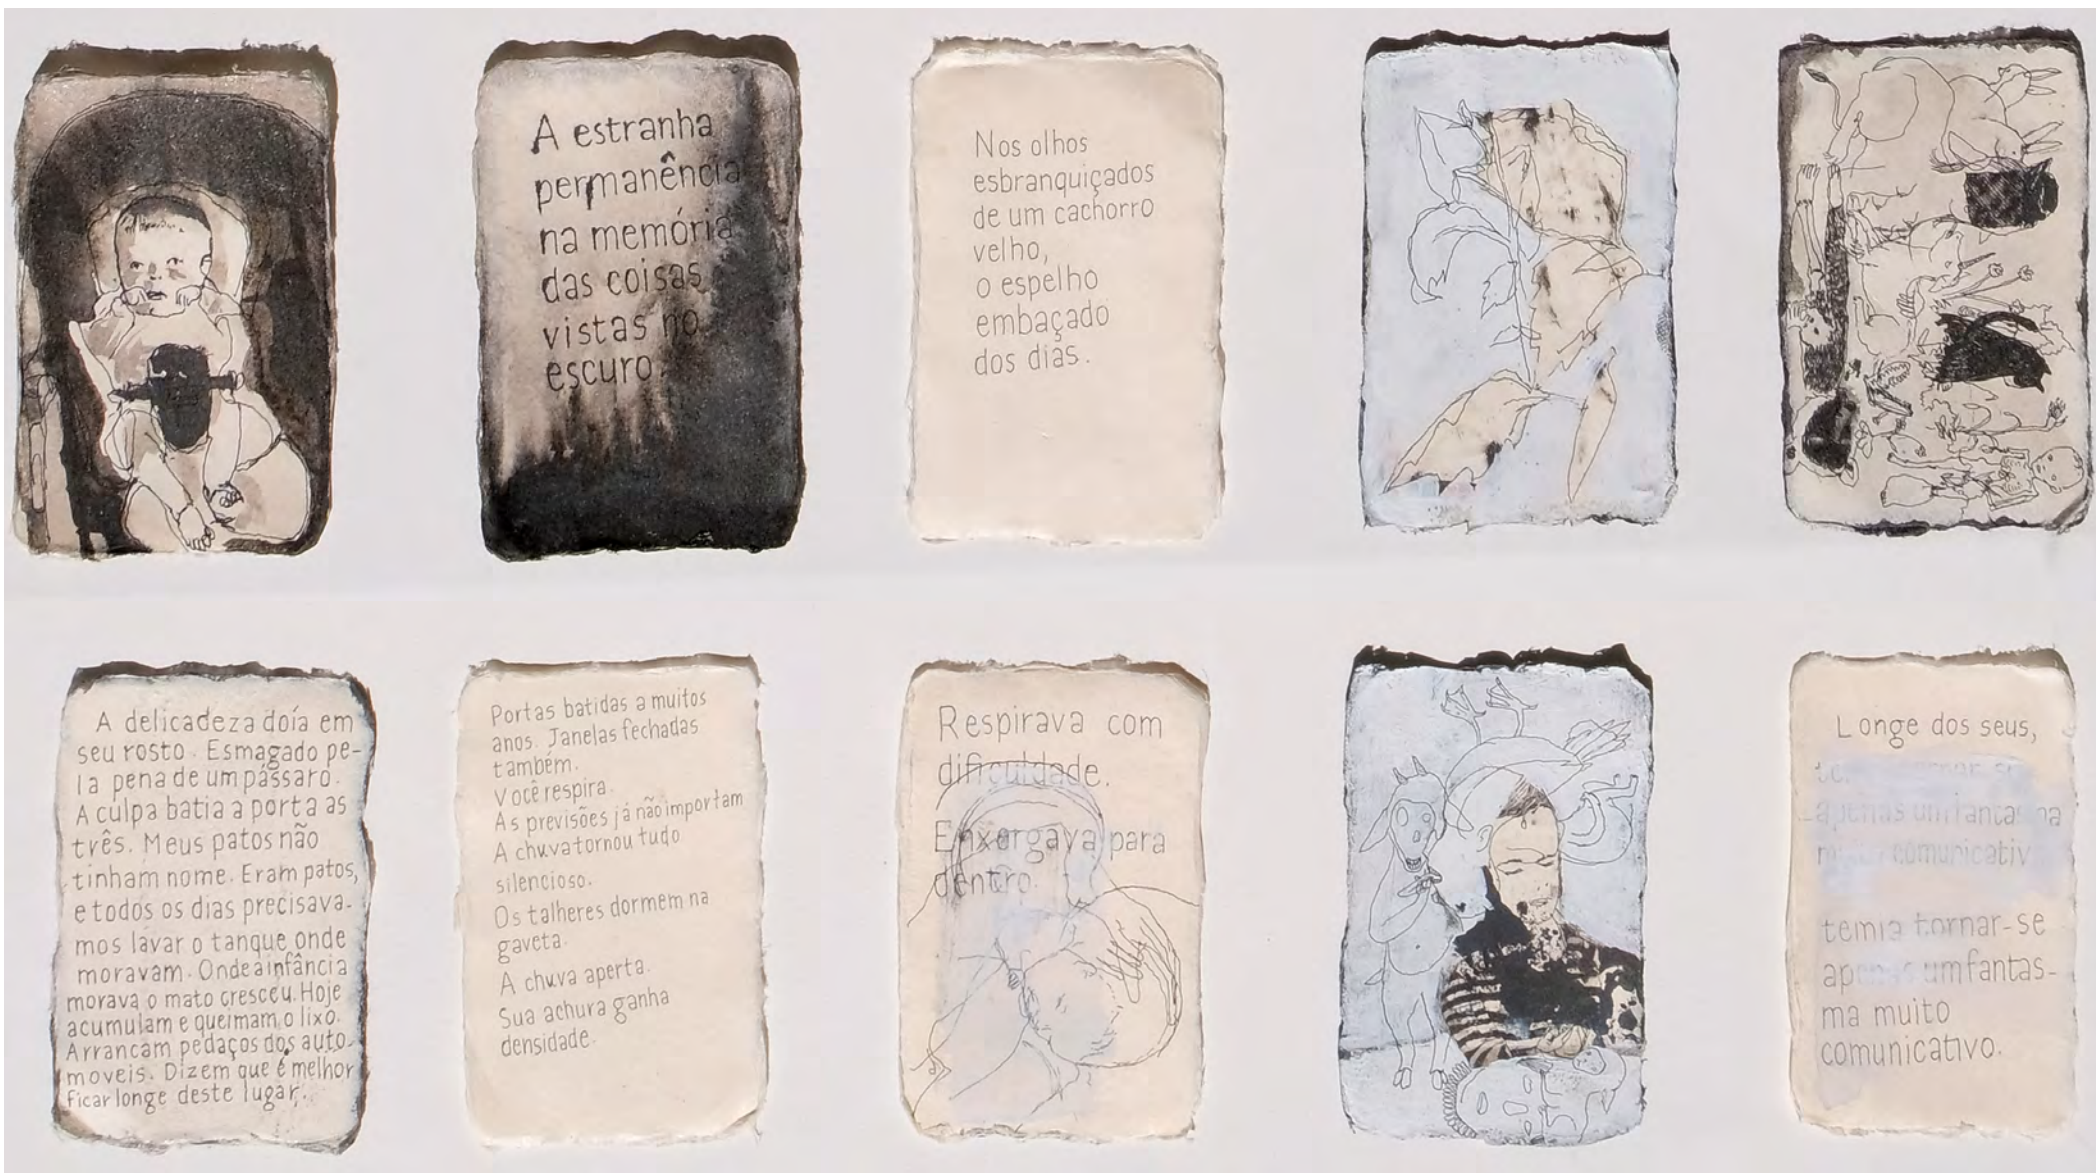 A estranha
permanência
na memória
das coisas
vistas no
escuro.
Nos olhos
esbranquiçados
de um cachorro
velho,
o espelho
embaçado
dos dias.
A delicadeza doía em
seu rosto. Esmagado pe-
la pena de um pássaro.
A culpa batia a porta as
três. Meus patos não
tinham nome. Eram patos,
e todos os dias precisava-
mos lavar o tanque onde
moravam. Onde a infância
morava o mato cresceu. Hoje
acumulam e queimam o lixo.
Arrancam pedaços dos auto-
moveis. Dizem que é melhor
ficar longe deste lugar.
Portas batidas a muitos
anos. Janelas fechadas
também.
Você respira.
As previsões já não importam
A chuva tornou tudo
silencioso.
Os talheres dormem na
gaveta.
A chuva aperta.
Sua achura ganha
densidade.
Respirava com
dificuldade.
Enxergava para
dentro.
Longe dos seus,
apenas um fantasma
comunicativ
temia tornar-se
apenas um fantas-
ma muito
comunicativo.